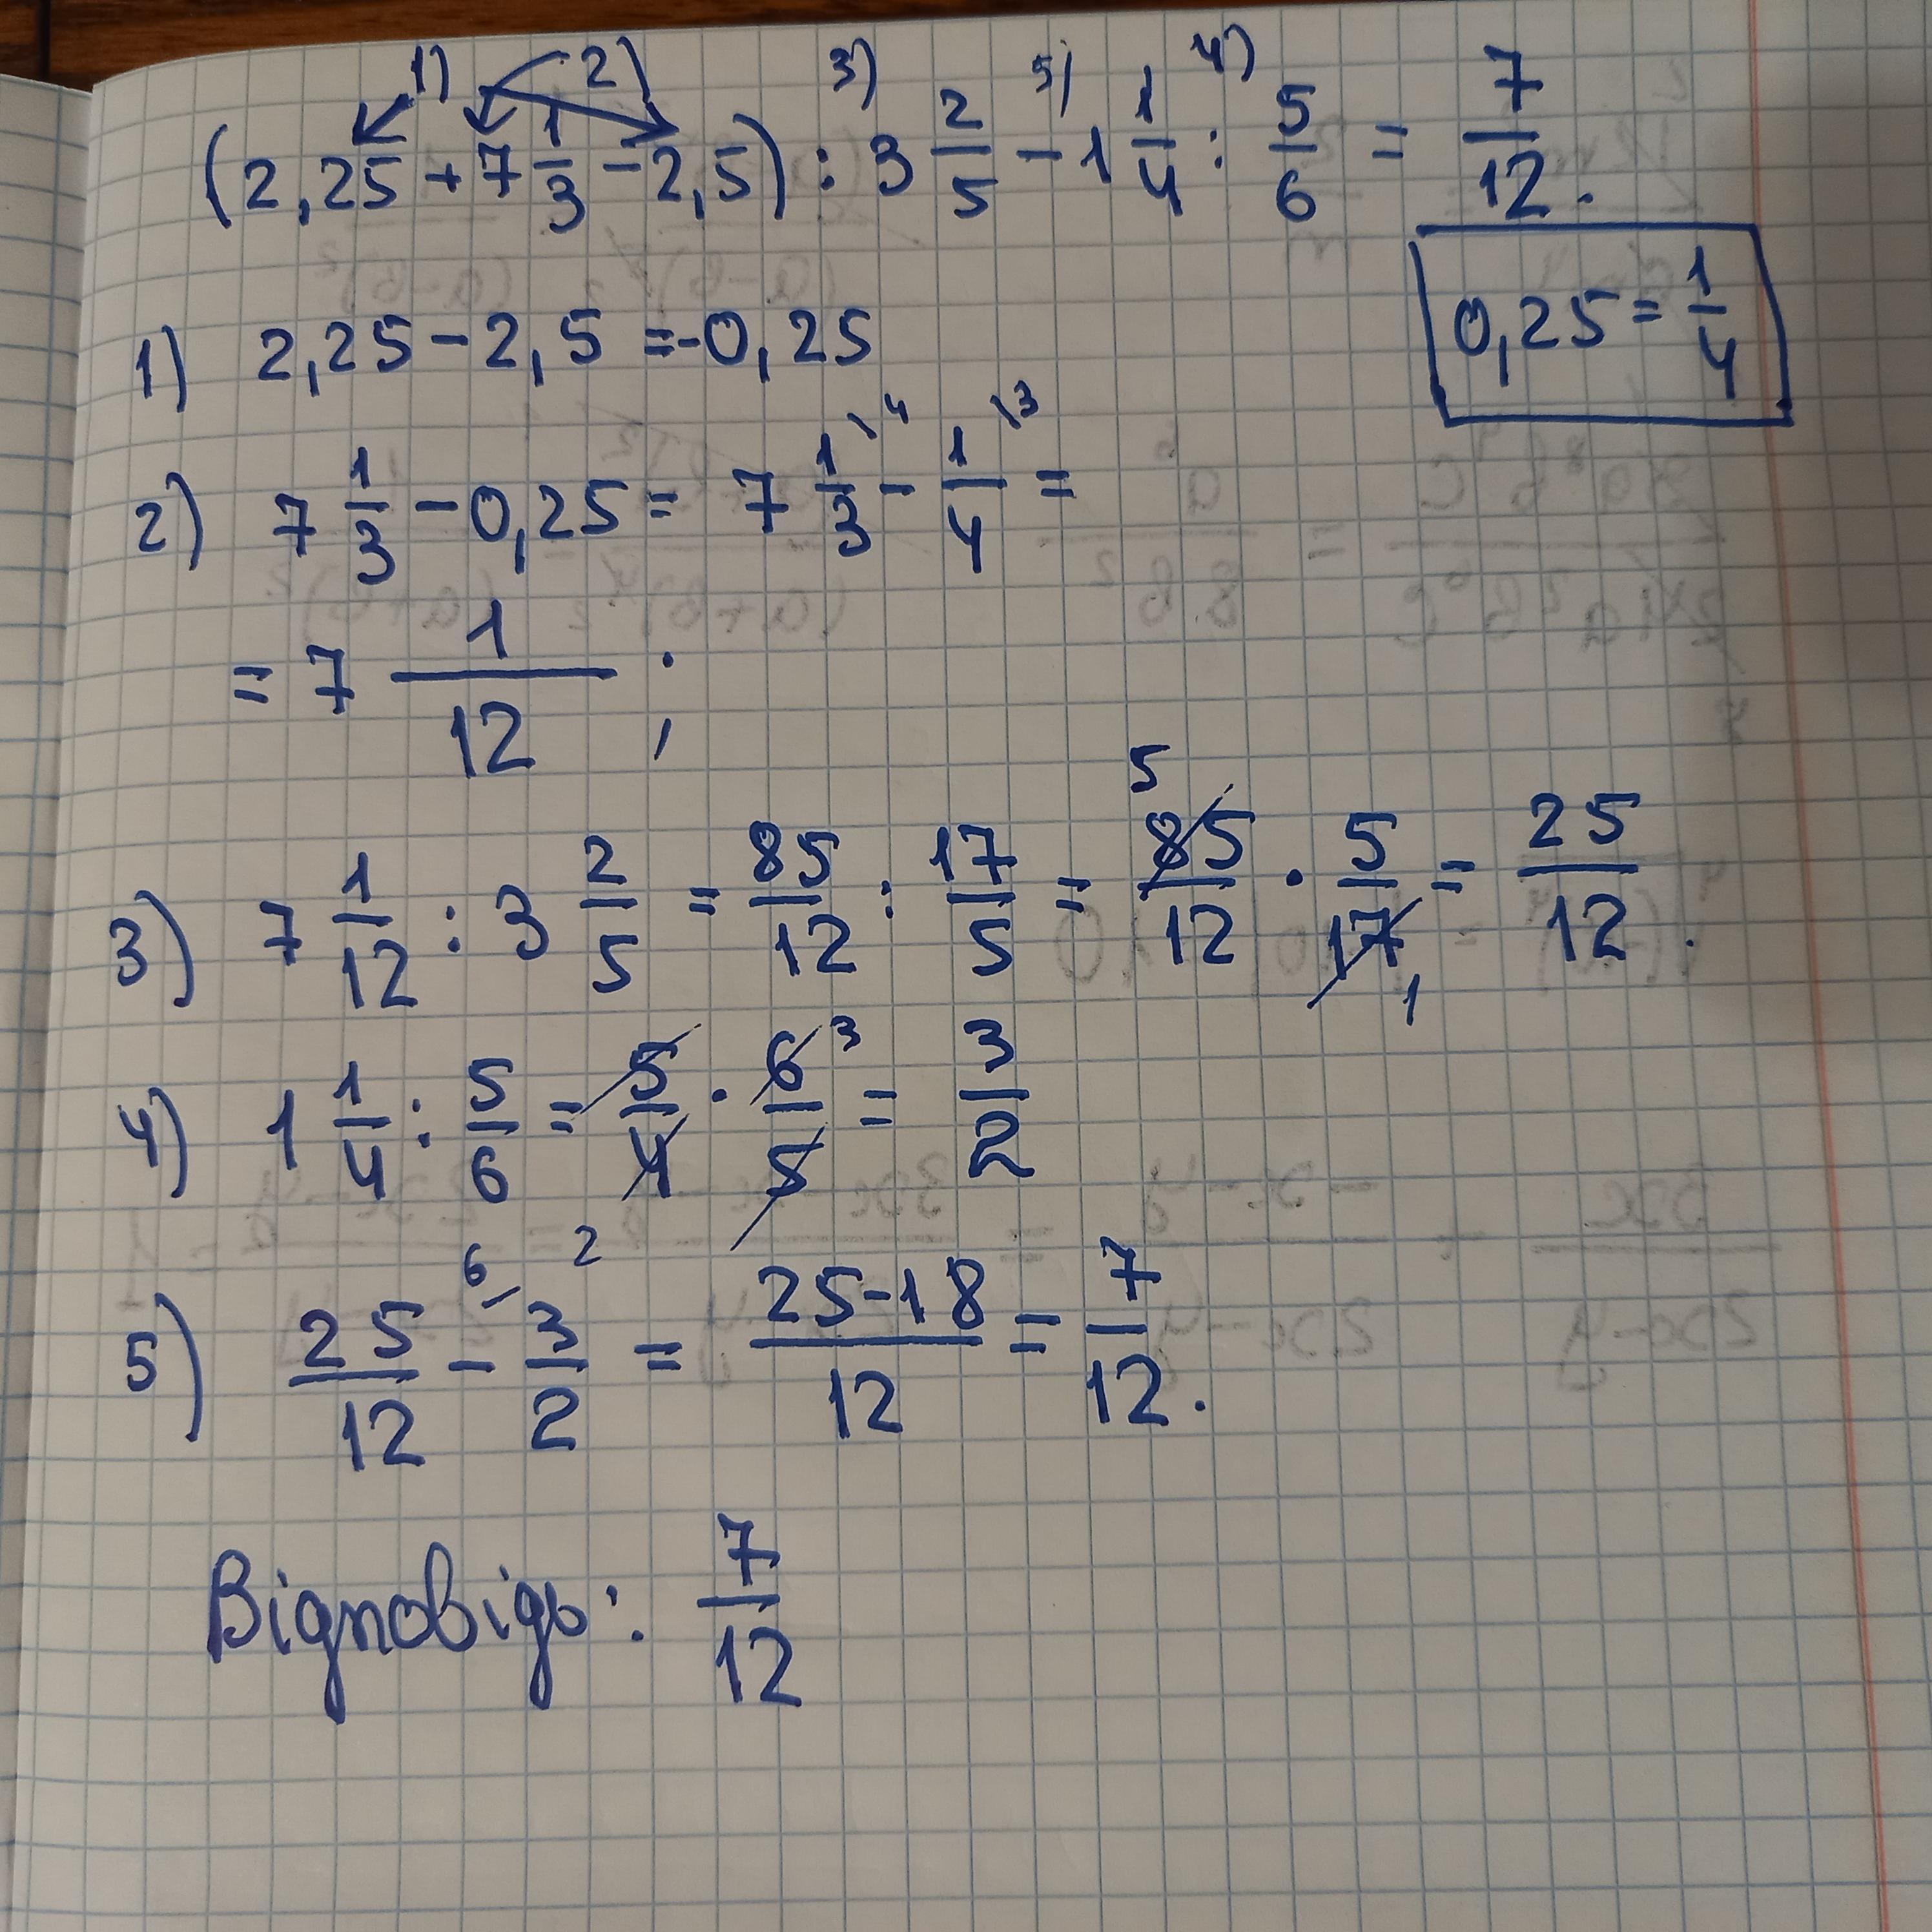 1) 2) 3) 5) 4)
(2,25 + 7 1/3 - 2,5) : 3 2/5 - 1 1/4 : 5/6 = 7/12.
0,25 = 1/4
1) 2,25 - 2,5 = -0,25
2) 7 1/3 - 0,25 = 7 1/3 \4 - 1/4 \3 =
= 7 1/12 ;
3) 7 1/12 : 3 2/5 = 85/12 : 17/5 = 85 5/12 · 5/17 1 = 25/12.
4) 1 1/4 : 5/6 = 5/4 · 6 3/5 = 3/2
5) 25/12 - 6/ 3/2 2 = 25-18/12 = 7/12.
Відповідь: 7/12